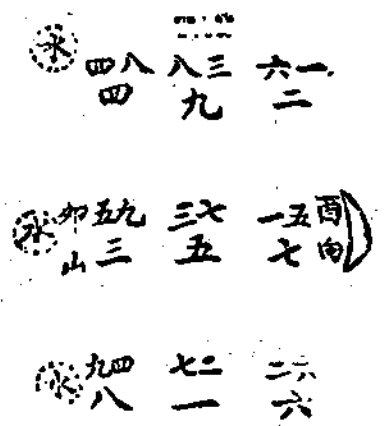 水 四八 八三 六一
四 九 二
水 卯 五九 三七 一五 酉
山 三 五 七 向
水 九四 七二 二六
八 一 六